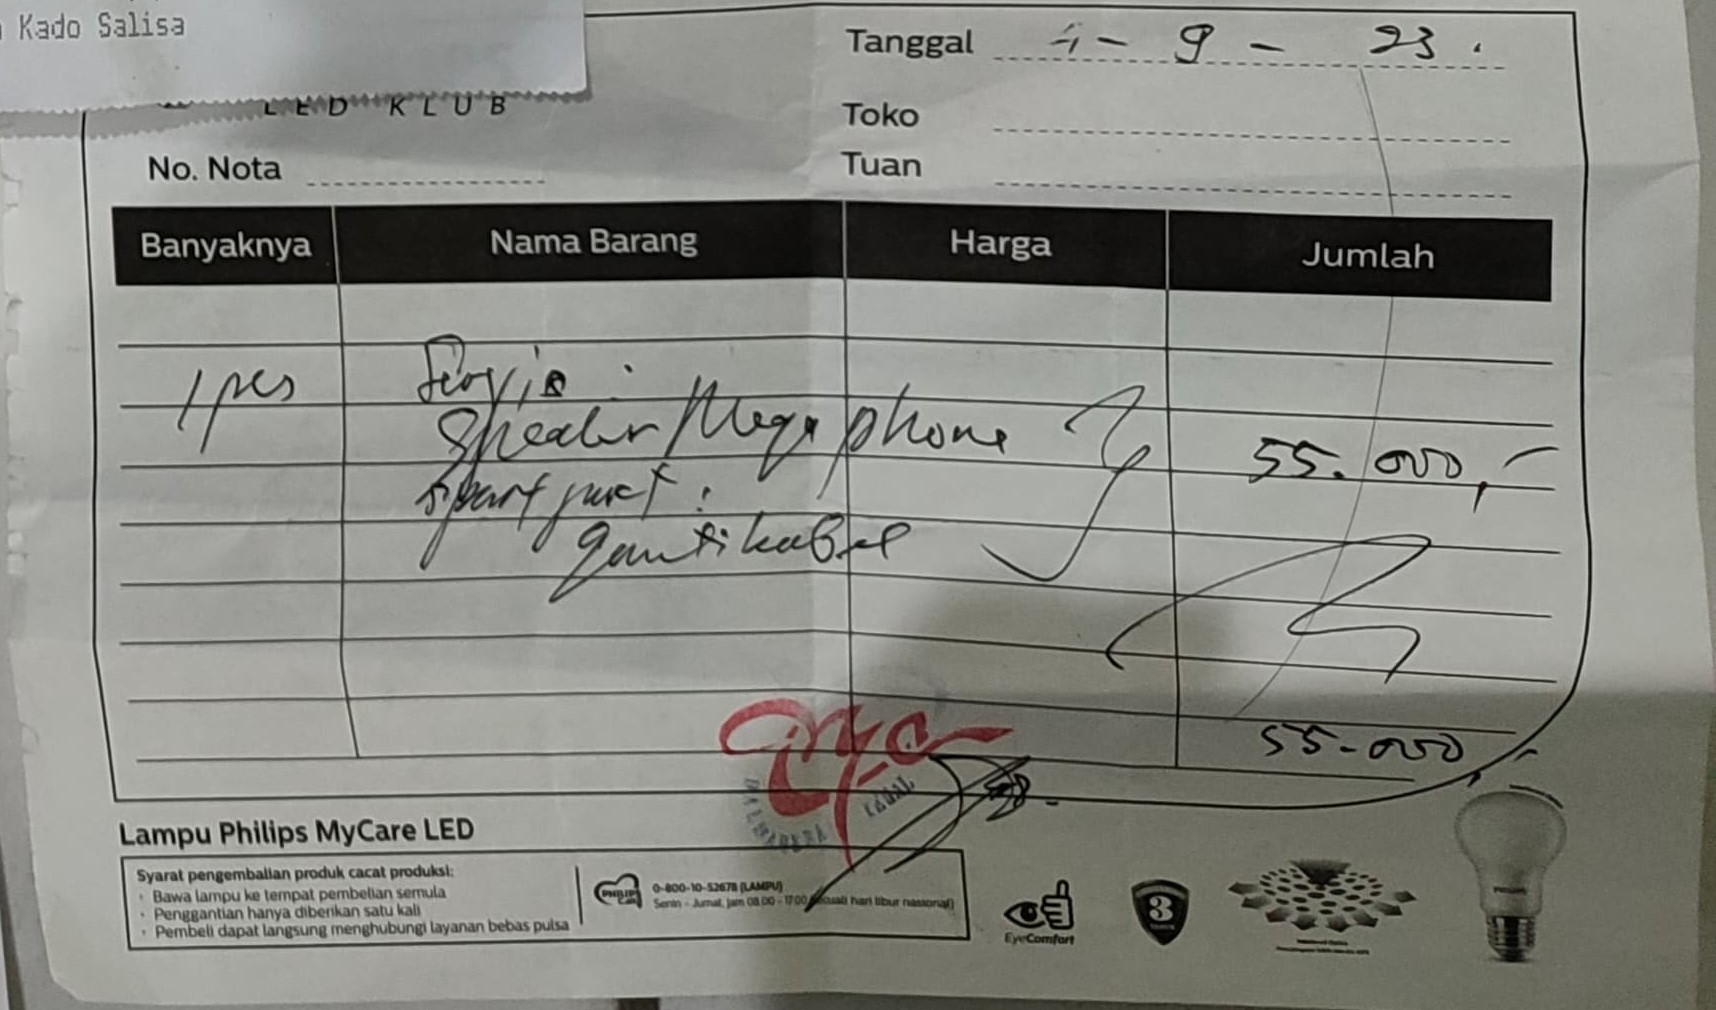 Kado Salisa
LED KLUB
Tanggal - 9 - 23.
Toko
No. Nota
Tuan
Banyaknya Nama Barang Harga Jumlah
1 pcs
Speaker/Megaphone 55.000,-
spart part:
ganti kabel
55.000,-
Lampu Philips MyCare LED
Syarat pengembalian produk cacat produksi:
· Bawa lampu ke tempat pembelian semula
· Penggantian hanya diberikan satu kali
· Pembeli dapat langsung menghubungi layanan bebas pulsa
0-800-10-52678 (LAMPU)
Senin - Jumat, jam 08.00 - 17.00 hari libur nasional)
EyeComfort
3